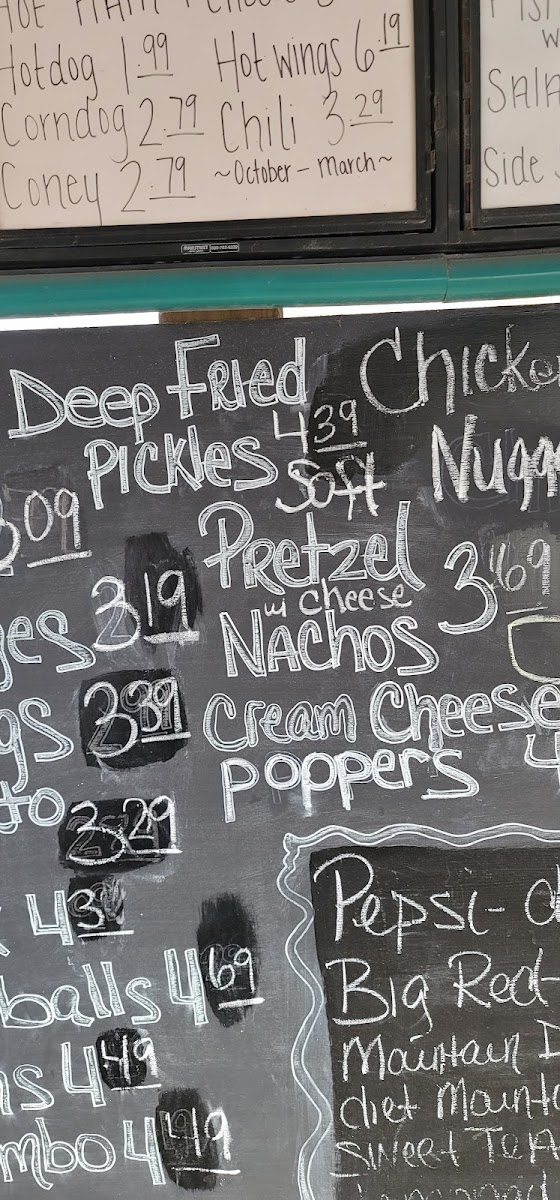 Hotdog 1.99 Hot wings 6.19
Corndog 2.79 Chili 3.29
Coney 2.79 ~October - March~
Sala
Side
Deep Fried
Pickles 4.39
Chicke
Nugg
3.09
Soft
Pretzel
w/ cheese
3.69
Nachos
ges 3.19
gs 3.39
Cream Cheese
Poppers 4
to 3.29
4.3
balls 4.69
ns 4.49
mbo 4.49
Pepsi - d
Big Red
Mountain D
diet Mounta
Sweet Tea